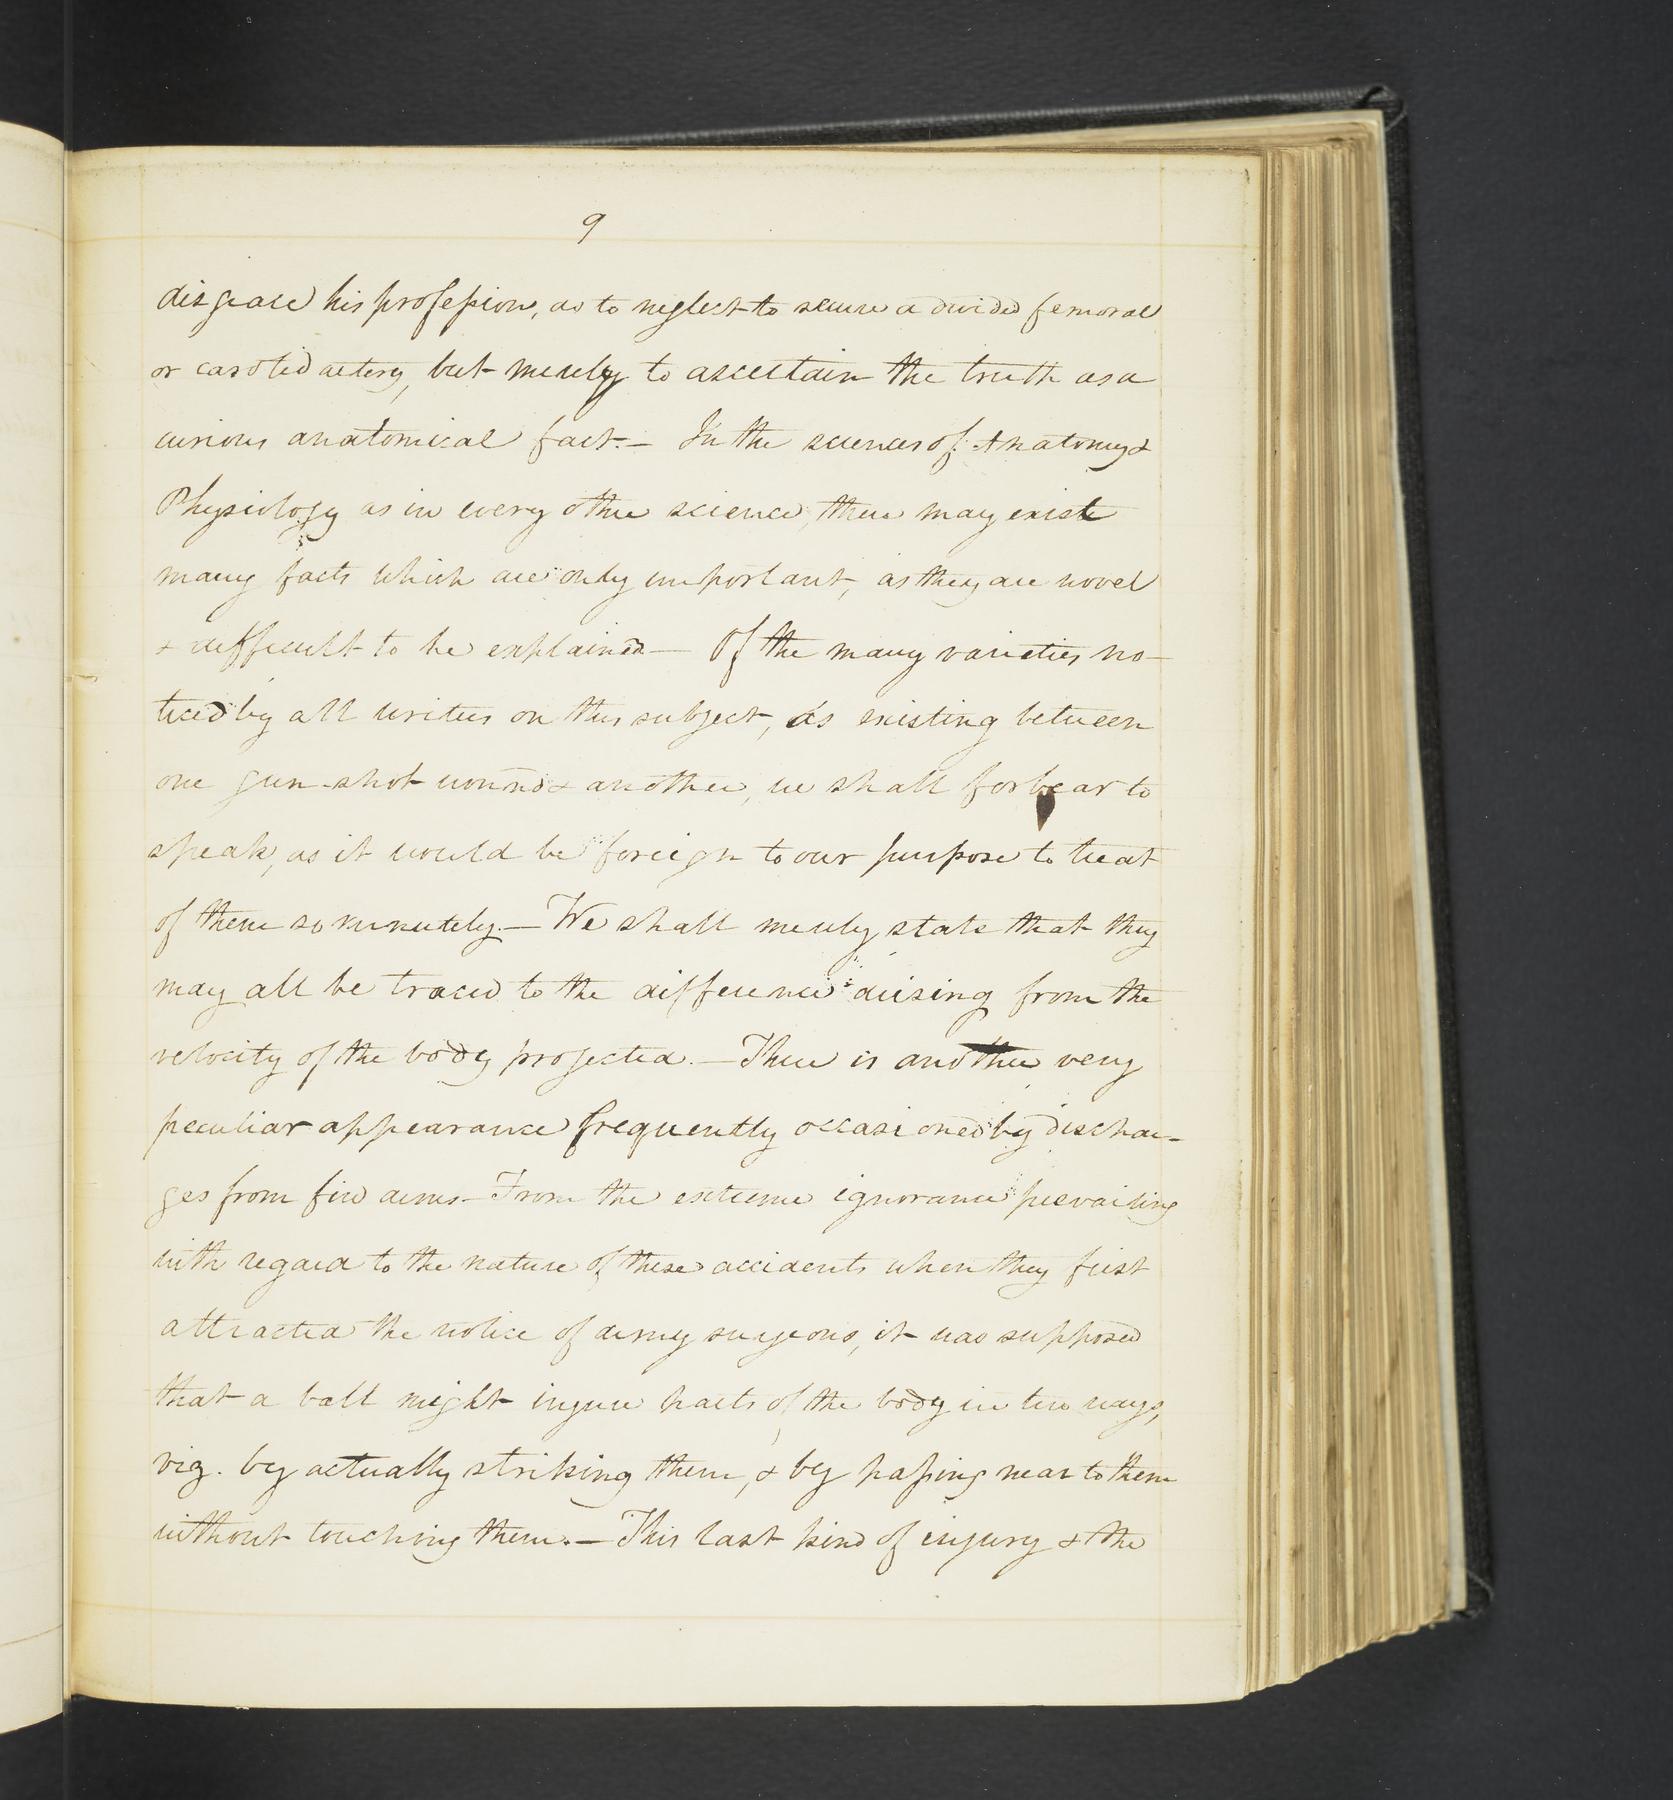 9
disgrace his profession, as to neglect to secure a divided femoral
or carotid artery, but merely to ascertain the truth as a
curious anatomical fact.— In the sciences of Anatomy &
Physiology as in every other science, there may exist
many facts which are only important, as they are novel
& difficult to be explained — Of the many varieties no-
ticed by all writers on this subject, as existing between
one gun-shot wound & another, we shall forbear to
speak, as it would be foreign to our purpose to treat
of them so minutely.— We shall merely state that they
may all be traced to the difference arising from the
velocity of the body projected.— There is another very
peculiar appearance frequently occasioned by dischar-
ges from fire arms.— From the extreme ignorance prevailing
with regard to the nature of these accidents when they first
attracted the notice of army surgeons, it was supposed
that a ball might injure parts of the body in two ways,
viz. by actually striking them, & by passing near to them
without touching them.— This last kind of injury & the